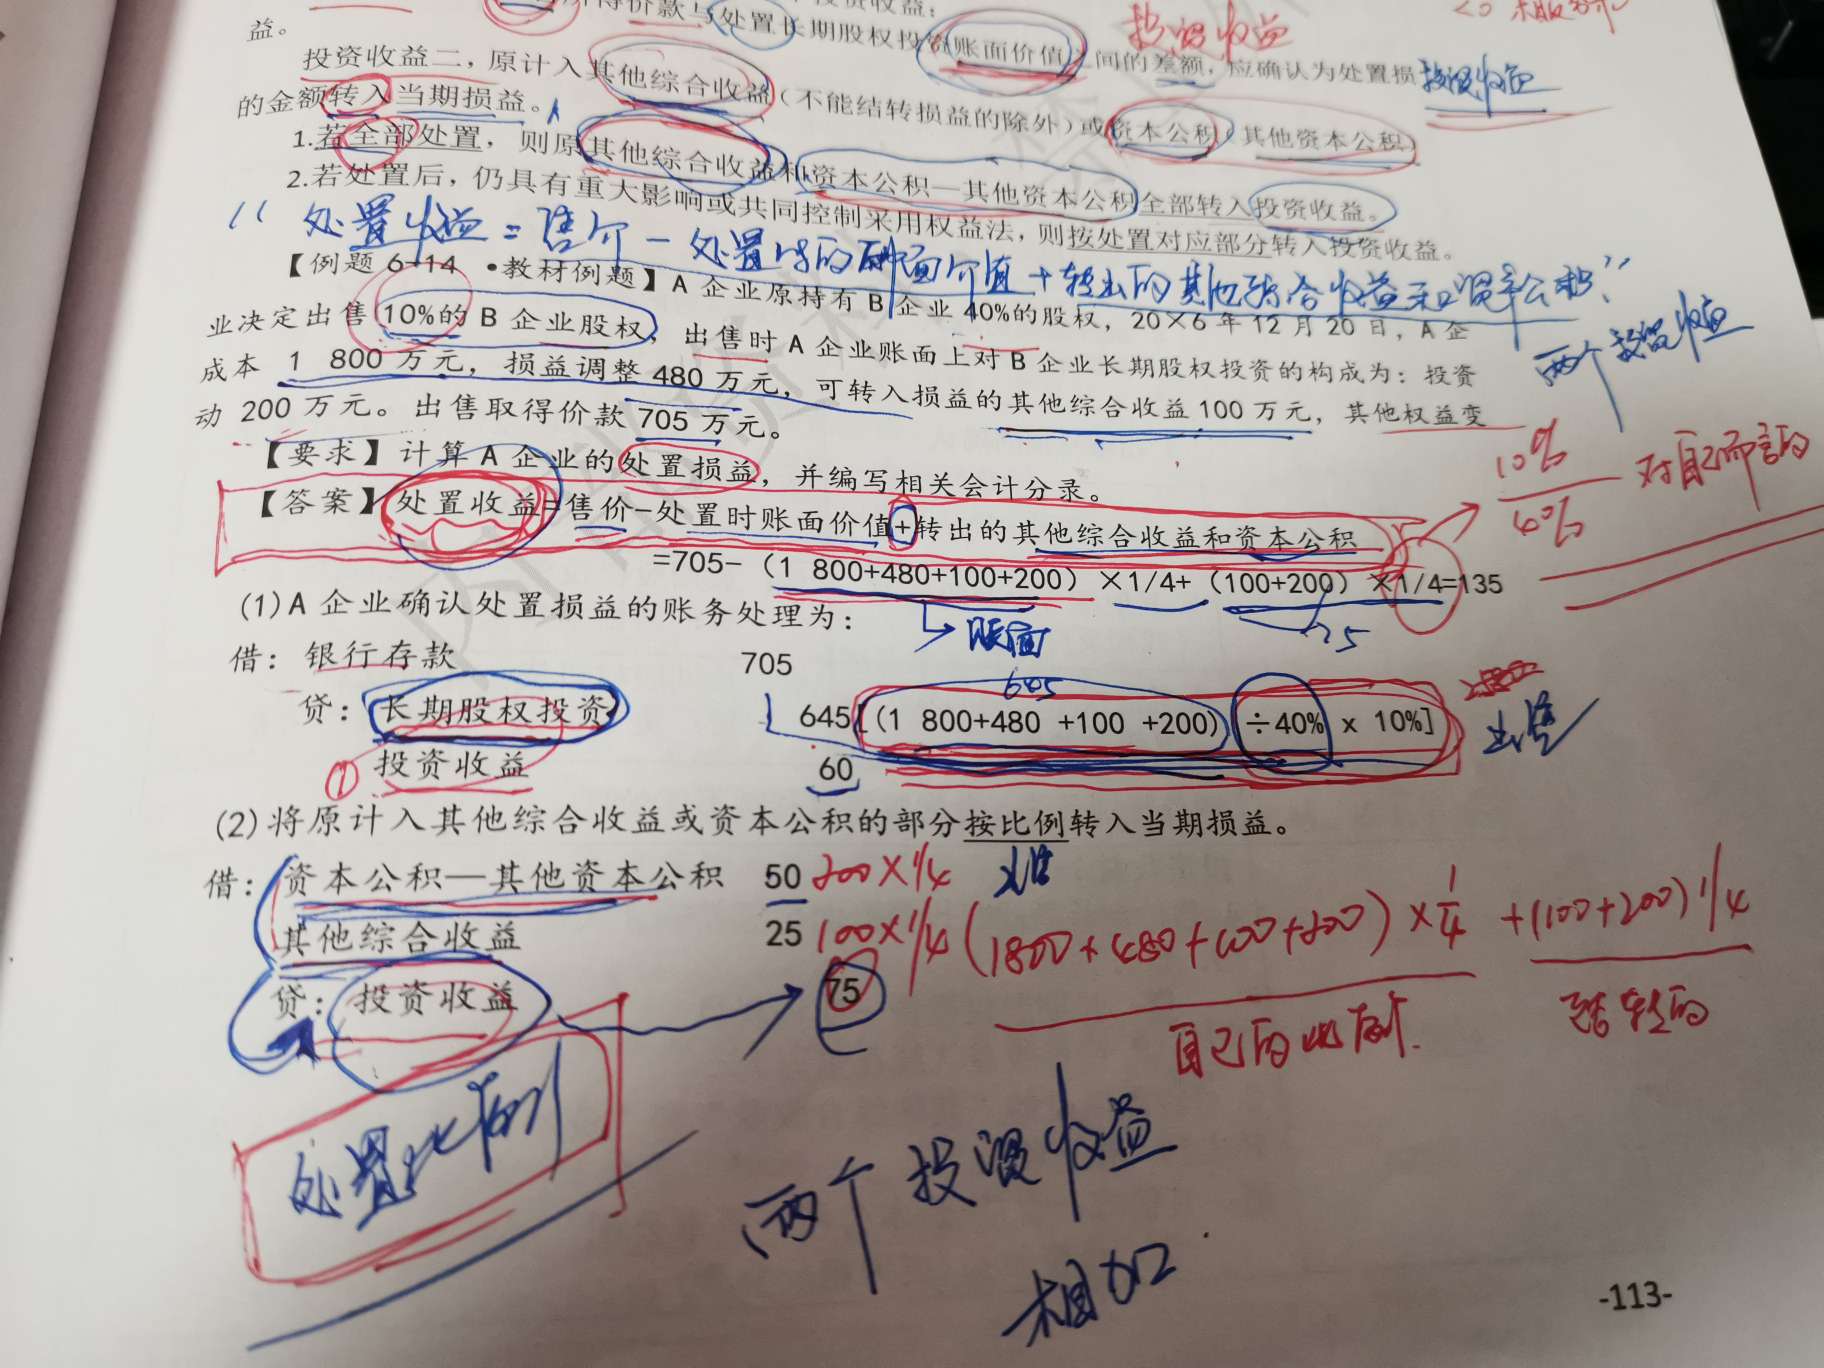 投资收益:
所得价款与处置长期股权投资账面价值之间的差额,应确认为处置损
益。
投资收益
投资收益
投资收益二,原计入其他综合收益(不能结转损益的除外)或资本公积(其他资本公积)
的金额转入当期损益。
1.若全部处置,则原其他综合收益和资本公积—其他资本公积全部转入投资收益。
2.若处置后,仍具有重大影响或共同控制采用权益法,则按处置对应部分转入投资收益。
“处置收益=售价-处置时的账面价值+转出的其他综合收益和资本公积”
【例题6-14 •教材例题】A企业原持有B企业40%的股权,20×6年12月20日,A企
业决定出售10%的B企业股权,出售时A企业账面上对B企业长期股权投资的构成为:投资
成本 1 800万元,损益调整480万元,可转入损益的其他综合收益100万元,其他权益变
动 200万元。出售取得价款705万元。
两个投资收益
【要求】计算A企业的处置损益,并编写相关会计分录。
【答案】处置收益=售价-处置时账面价值+转出的其他综合收益和资本公积
10%
40%
对自己而言的
=705-(1 800+480+100+200)×1/4+(100+200)×1/4=135
账面
75
(1)A企业确认处置损益的账务处理为:
借:银行存款 705
645
贷:长期股权投资 645[(1 800+480 +100 +200) ÷40% x 10%]
出售
① 投资收益 60
(2)将原计入其他综合收益或资本公积的部分按比例转入当期损益。
借:资本公积—其他资本公积 50 200×1/4
其他综合收益 25 100×1/4 (1800+480+100+200)×1/4 +(100+200)1/4
贷:投资收益 75
自己的比例. 结转的
处置比例
两个投资收益
相加
-113-